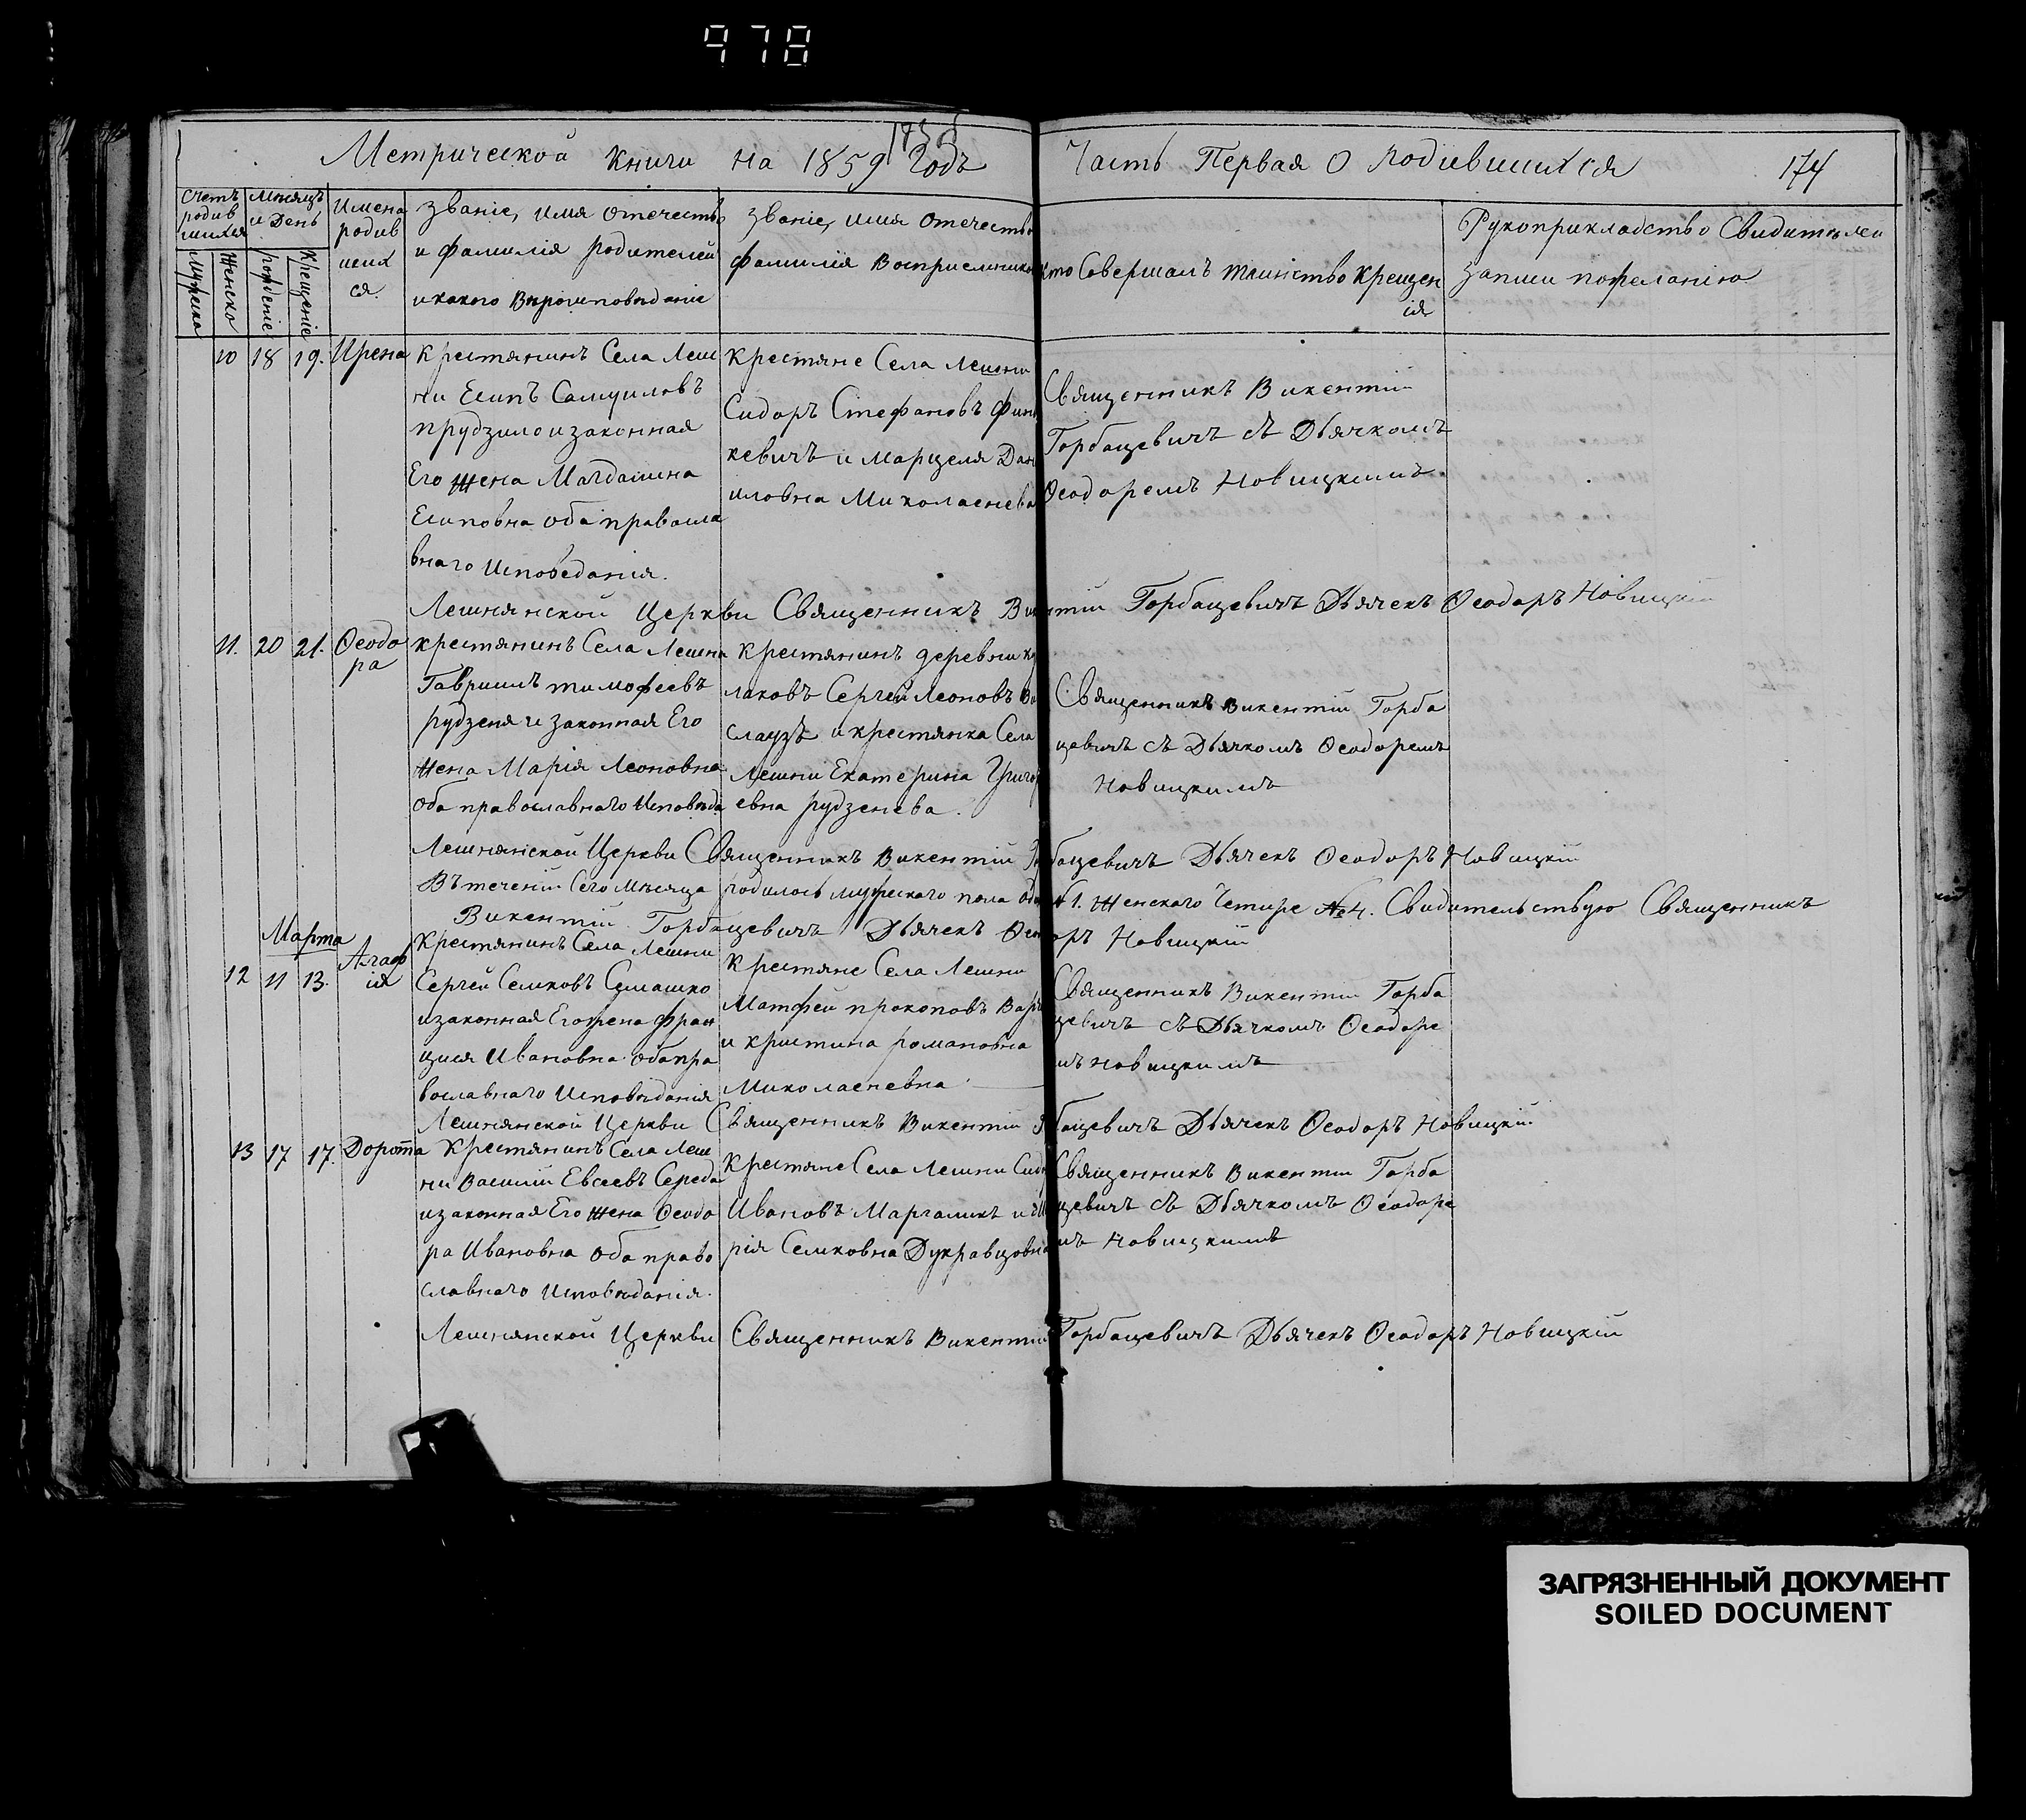 978
Метрической книги на 1859 Годъ
Часть Первая О Родившихся
174
Счетъ родив шихся
Мѣсяцъ и День
Имена родив шихся.
Мужеска
Женска
рожденіе
Крещеніе
Званіе, Имя Отечество
и фамилія родителей
и какого Вѣроисповѣданіе
Званіе, имя Отечество
фамилія Воспріемниковъ
кто Совершалъ таинство крещен
ія
Рукоприкладство Свидѣтелей
записи пожеланію
10 18 19. Ирена
крестянинъ Села Леш
ни Есипъ Самуиловъ
прудзило изаконная
Его жена Магдалина
Есиповна оба правосла
внаго Исповеданія.
Крестяне Села Лешни
Сидоръ Стефановъ Фин
кевичъ и Марцеля Дан
иловна Миколаенева
Священникъ Викентій
Горбацевичъ съ Дьячкомъ
Ѳеодоремъ Новицкимъ
Лешнянской Церкви Священникъ Викентій Горбацевичъ Дьячекъ Ѳеодоръ Новицкій
11. 20 21. Ѳеодо
ра
крестянинъ Села Лешни
Гавріилъ тимофеевъ
рудзеня и законная Его
жена Марія Леоновна
оба православнаго Исповѣда
крестянинъ деревни
лаковъ Сергей Леоновъ
и крестянка Села
Лешни Екатерина Григор
евна рудзенева.
Священникъ Викентій Горба
цевичъ съ Дьячкомъ Ѳеодоремъ
Новицкимъ
Лешнянской Церкви Священникъ Викентій Горбацевичъ Дьячекъ Ѳеодоръ Новицкій
Въ теченіи Сего Мѣсяца родилось мужескаго пола №1. Женскаго Четире №4. Свидительствую Священникъ
Викентій Горбацевичъ Дьячекъ Ѳеодоръ Новицкій
Марта
12 11 13. Агаф
ія
Крестянинъ Села Лешни
Сергей Семковъ Сумашко
изаконная Егожена Фран
ция Ивановна оба пра
вославнаго Исповѣданія
Крестяне Села Лешни
Матфей прокоповъ
и кристина романовна
Миколаеневна
Священникъ Викентій Горба
цевичъ съ Дьячкомъ Ѳеодоре
мъ новицкимъ
Лешнянской Церкви Священникъ Викентій Горбацевичъ Дьячекъ Ѳеодоръ Новицкій
13 17 17. Дорота
Крестянинъ Села Леш
ни Василій Евсеевъ Середа
изаконная Его жена Ѳеодо
ра Ивановна оба право
славнаго Исповѣданія.
Крестяне Села Лешни
Ивановъ Маргаликъ и
рія Семковна Дукравцовна
Священникъ Викентій Горба
цевичъ съ Дьячкомъ Ѳеодоре
мъ Новицкимъ
Лешнянской Церкви Священникъ Викентій Горбацевичъ Дьячекъ Ѳеодоръ Новицкій
ЗАГРЯЗНЕННЫЙ ДОКУМЕНТ
SOILED DOCUMENT